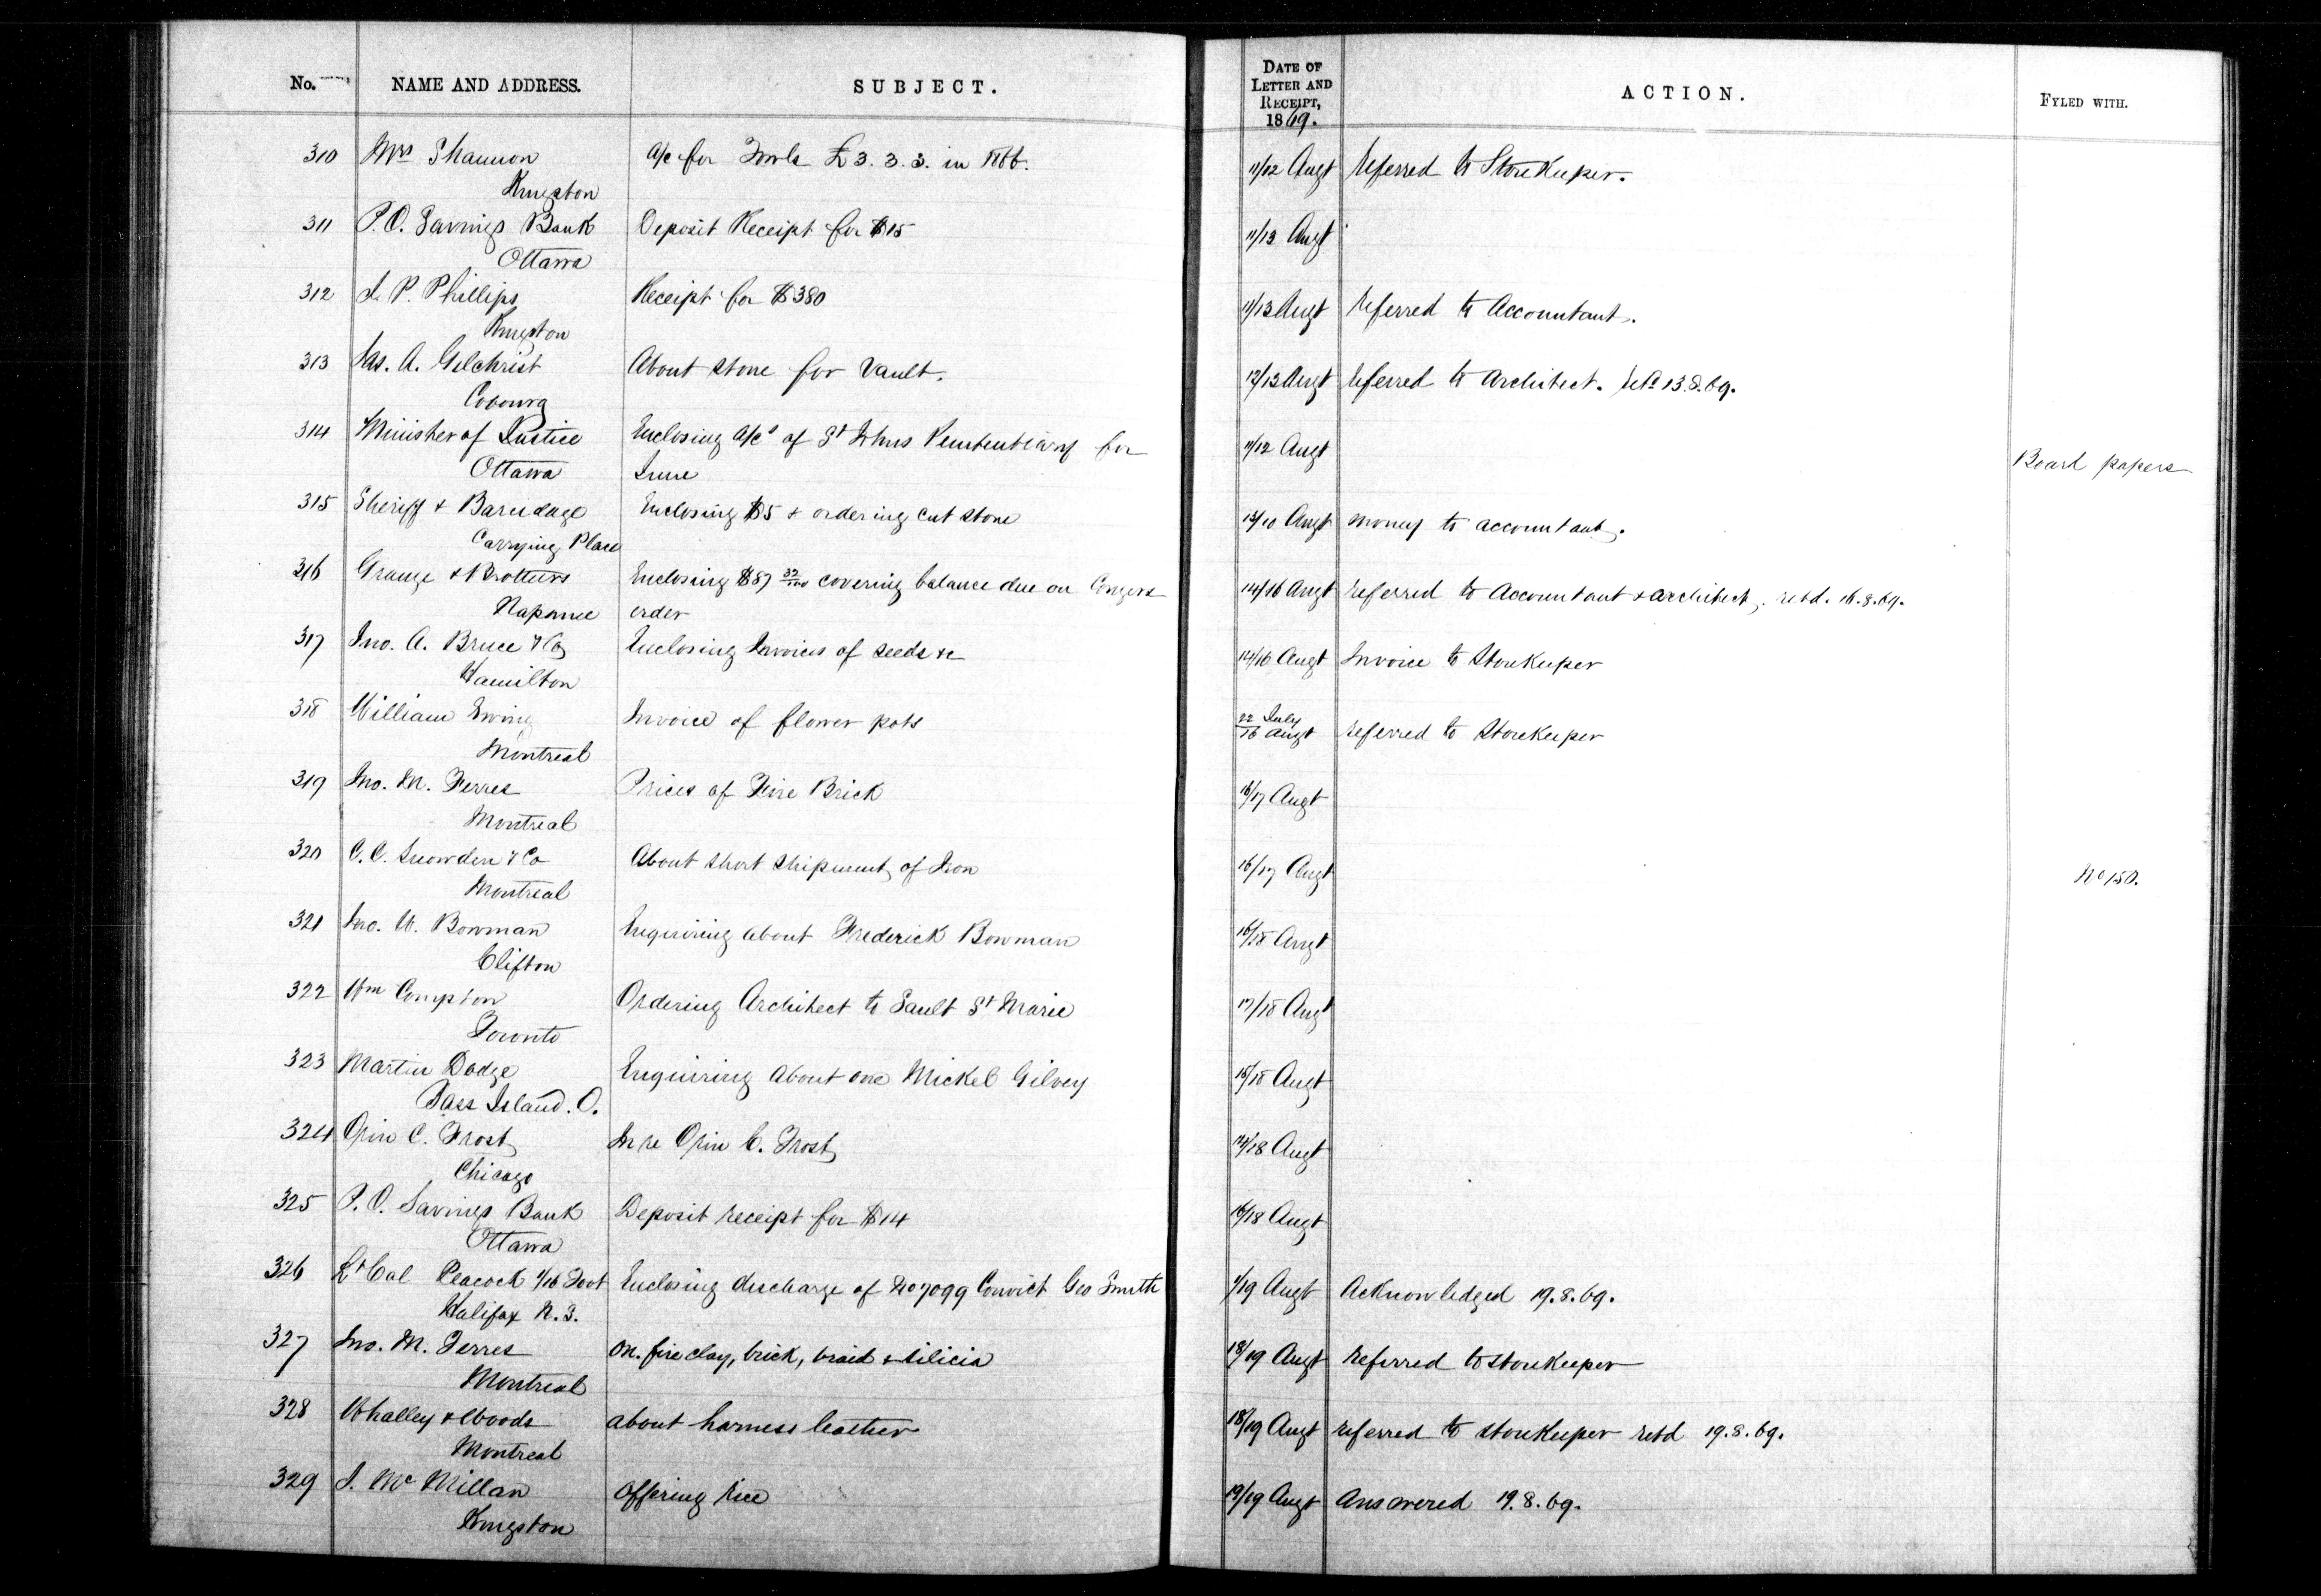 No. NAME AND ADDRESS. SUBJECT. DATE OF LETTER AND RECEIPT, 1869. ACTION. FYLED WITH.
310 Mrs Shannon a/c for Fowls £3.3.3. in 1866. 11/12 Augt Referred to Storekeeper.
Kingston
311 P.O. Savings Bank Deposit Receipt for $15 11/13 Augt
Ottawa
312 P. Phillips Receipt for $380 11/13 Augt Referred to Accountant.
Kingston
313 Jas. A. Gilchrist About stone for Vault. 12/13 Augt Referred to Architect. retd 13.8.69.
Cobourg
314 Minister of Justice Enclosing a/cs of St Johns Penitentiary for 11/12 Augt Board papers
Ottawa June
315 Sheriff & Enclosing $5 & ordering cut stone Augt money to accountant.
Carrying Place
316 Grange & Brothers Enclosing $87 32/100 covering balance due on Congers 14/16 Augt referred to Accountant & architect, retd. 16.8.69.
Napanee order
317 Jno. A. Bruce & Co Enclosing Invoices of seeds &c 14/16 Augt Invoice to Storekeeper
Hamilton
318 William Ewing Invoice of flower pots 22 July / 16 Augt referred to Storekeeper
Montreal
319 Jno. M. Ferres Prices of Fire Brick 16/17 Augt
Montreal
320 C.C. Snowden & Co About short shipment of Iron 16/17 Augt No 150.
Montreal
321 Jno. W. Bowman Enquiring about Frederick Bowman 16/18 Augt
Clifton
322 Wm Compton Ordering Architect to Sault St Marie 17/18 Augt
Toronto
323 Martin Dodge Enquiring about one Mickel Gilvey 15/18 Augt
Bass Island. O.
324 Orin C. Frost In re Orin C. Frost 14/18 Augt
Chicago
325 P.O. Savings Bank Deposit receipt for $14 16/18 Augt
Ottawa
326 Lt Col Peacock 1/16 Foot Enclosing discharge of No 7099 Convict Geo Smith /19 Augt Acknowledged 19.8.69.
Halifax N.S.
327 Jno. M. Ferres on. fire clay, brick, braid & silicia 18/19 Augt Referred to storekeeper
Montreal
328 Whalley & Woods about harness leather 18/19 Augt referred to storekeeper retd 19.8.69.
Montreal
329 J. McMillan Offering rice 19/19 Augt Answered 19.8.69.
Kingston